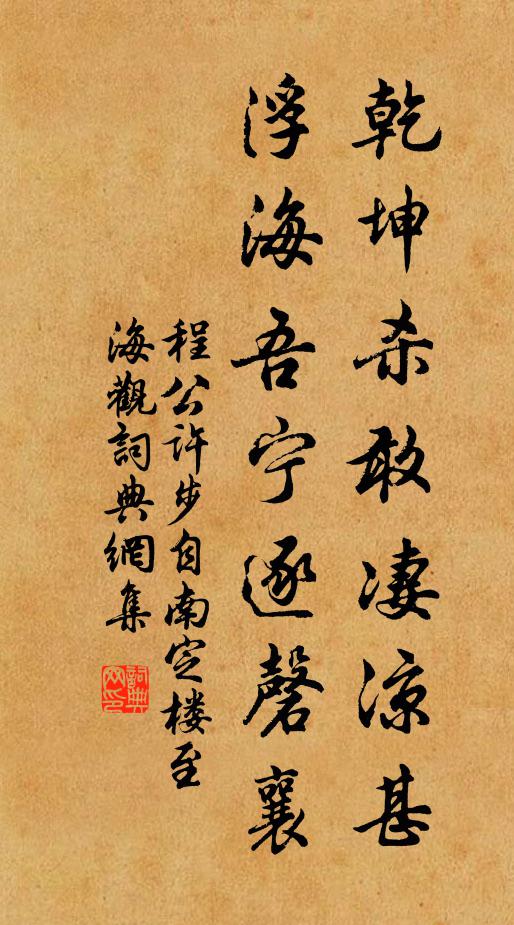 乾坤杀敢凄凉甚
浮海吾宁逐磬襄
程公许步自南定楼至
海觀詞典網集
詞典網印